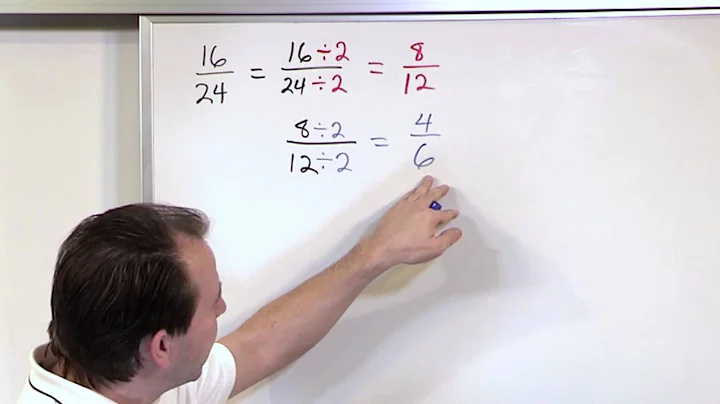 16/24 = 16÷2/24÷2 = 8/12
8÷2/12÷2 = 4/6